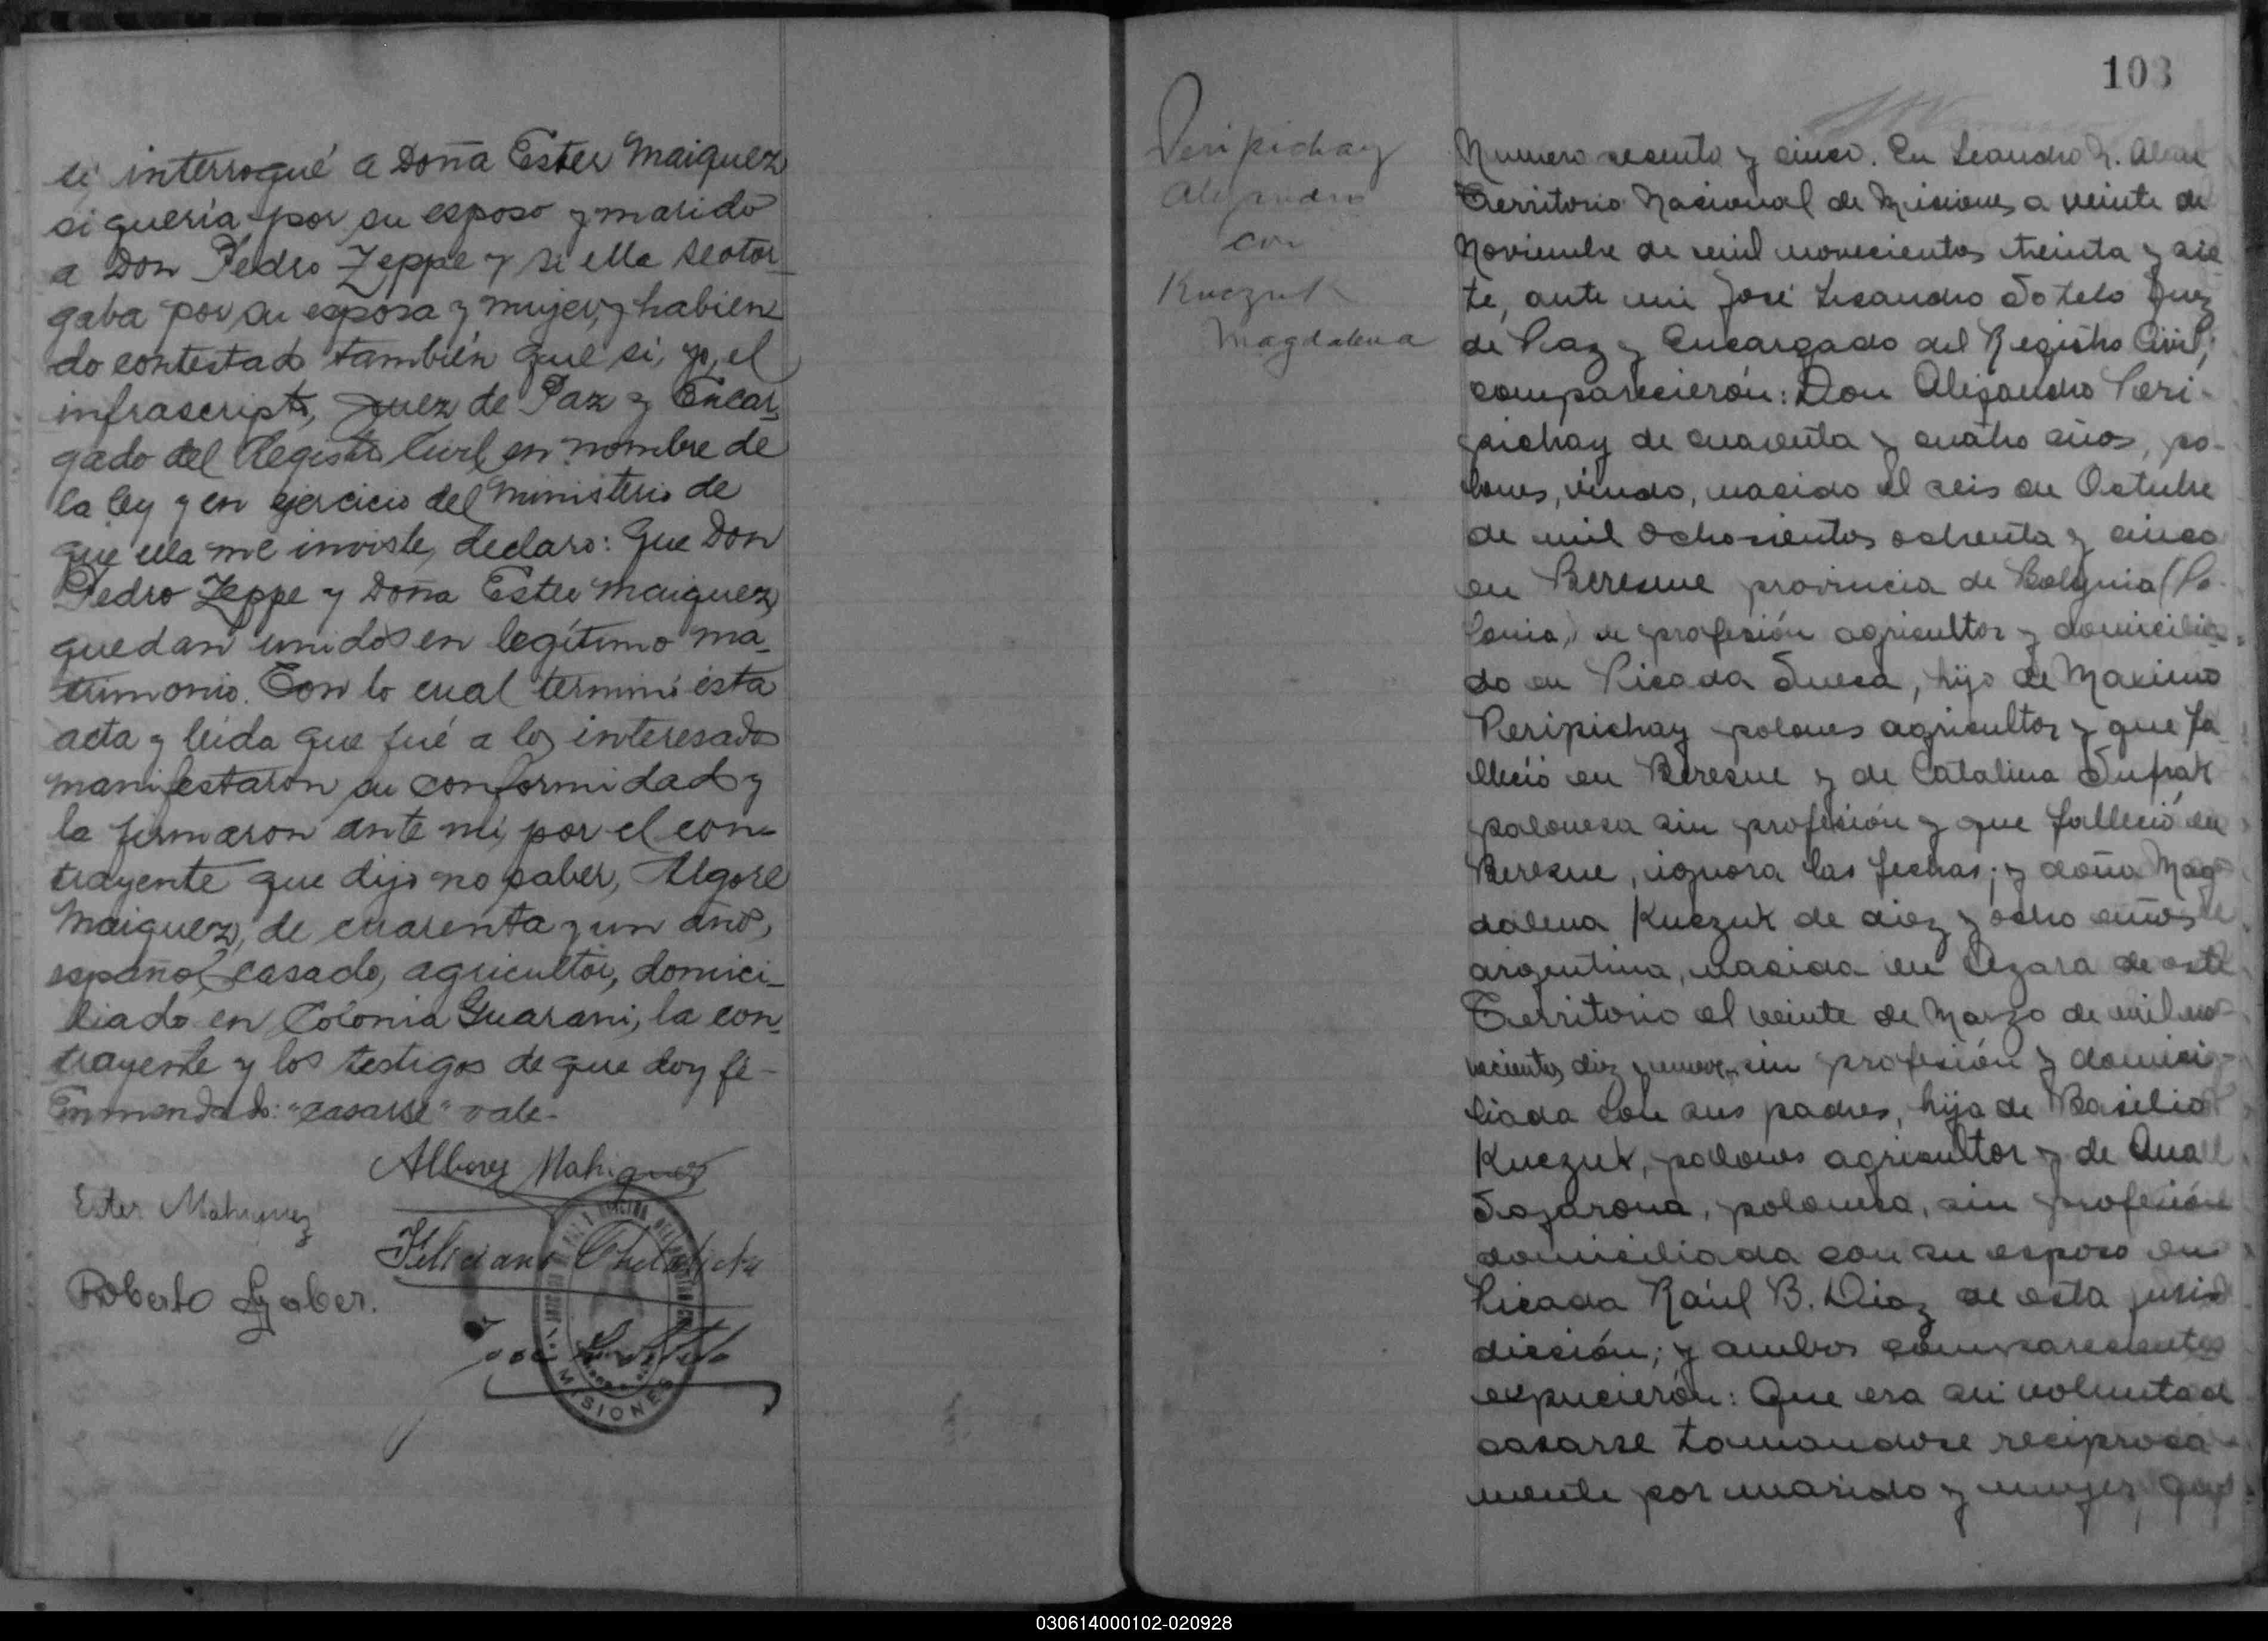 sí interrogué a Doña Ester Maiquez
si quería por su esposo y marido
a Don Pedro Zeppe y si ella se otor-
gaba por su esposa y mujer, y habien
do contestado también que sí, yo, el
infrascripto, Juez de Paz y Encar-
gado del Registro Civil en nombre de
la ley y en ejercicio del Ministerio de
que ella me inviste, declaro: Que Don
Pedro Zeppe y Doña Ester Maiquez,
quedan unidos en legítimo ma-
trimonio. Con lo cual terminó ésta
acta y leída que fué a los interesados
manifestaron su conformidad y
la firmaron ante mí, por el con-
trayente que dijo no saber,
Maiquez, de cuarenta y un años,
español, casado, agricultor, domici-
liado en Colonia Guaraní, la con-
trayente y los testigos de que doy fé-
Enmendado: "casarse" vale-
Mahiquez
Ester Mahiquez
Feliciano
Roberto
MISIONES
103
Peripichay
Alejandro
con
Kuczuk
Magdalena
Numero sesenta y cinco. En Leandro N. Alem
Territorio Nacional de Misiones a veinte de
Noviembre de mil novecientos treinta y sie-
te, ante mi José Lisandro Sotelo Juez
de Paz y Encargado del Registro Civil,
comparecierón: Don Alejandro Peri-
pichay de cuarenta y cuatro años, po-
lones, viudo, nacido el seis de Octubre
de mil ochosientos ochenta y cinco
en Beresne provincia de Bolynia (Po-
lonia) de profesión agricultor y domicilia-
do en Picada Sueca, hijo de Maximo
Peripichay polones agricultor y que fa-
lleció en Beresne y de Catalina Sufrak
polonesa sin profesión y que falleció en
Beresne, ignora las fechas; y doña Mag-
dalena Kuczuk de diez y ocho años
argentina, nacida en Azara de este
Territorio el veinte de Marzo de mil no-
vecientos diez y nueve, sin profesión y domici-
liada con sus padres, hija de Basilio
Kuczuk, polones agricultor y de Ana
polonesa, sin profesión
domiciliada con su esposo en
Picada Raúl B. Diaz de esta juris-
dicción; y ambos comparecientes
expucierón: Que era su voluntad
casarse tomandose reciproca-
mente por marido y mujer, que
030614000102-020928